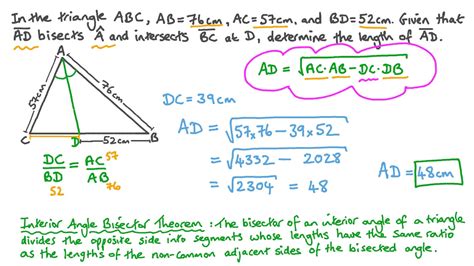 In the triangle ABC, AB=76cm, AC=57cm, and BD=52cm. Given that
AD bisects Â and intersects BC at D, determine the length of AD.
A
57cm
76cm
C
D
52cm
B
AD = √AC·AB−DC·DB
DC = 39cm
AD = √57×76 − 39×52
= √4332 − 2028
= √2304 = 48
AD = 48cm
DC/BD = AC/AB
57
52
76
Interior Angle Bisector Theorem : The bisector of an interior angle of a triangle
divides the opposite side into segments whose lengths have the same ratio
as the lengths of the non-common adjacent sides of the bisected angle.